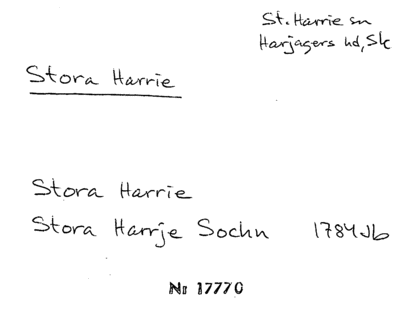 St. Harrie sn
Harjagers hd, Sk
Stora Harrie
Stora Harrie
Stora Harrje Sochn 1784 Jb
Nr 17770